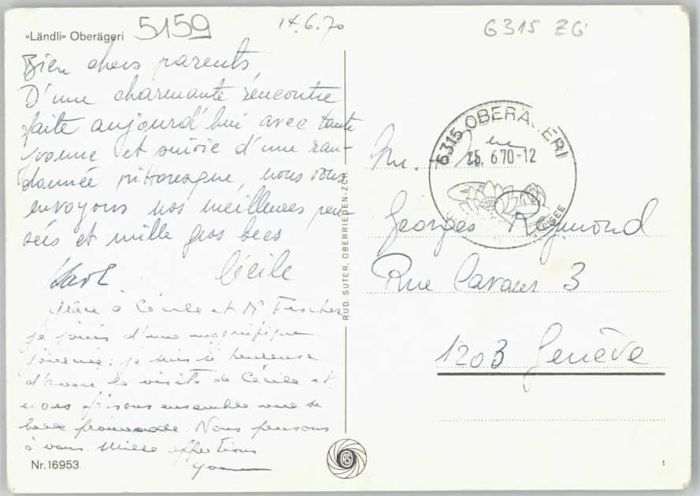 «Ländli» Oberägeri
5159
14.6.70
6315 ZG
Bien chers parents
D'une charmante rencontre
faite aujourd'hui avec tante
Yvonne et suivie d'une ran-
donnée pittoresque, nous vous
envoyons nos meilleures pen-
sées et mille gros becs
Cécile
Grâce à Cécile et Mr Fischer
je jouis d'une magnifique
journée; je suis si heureuse
d'avoir la visite de Cécile et
nous faisons ensemble une si
belle promenade. Nous pensons
à vous. Mille affections
Yvonne
Nr. 16953
RUD. SUTER, OBERRIEDEN-ZCH.
RS
6315 OBERÄGERI
25.6.70-12
Georges Reymond
Rue Cavour 3
1203 Genève
1